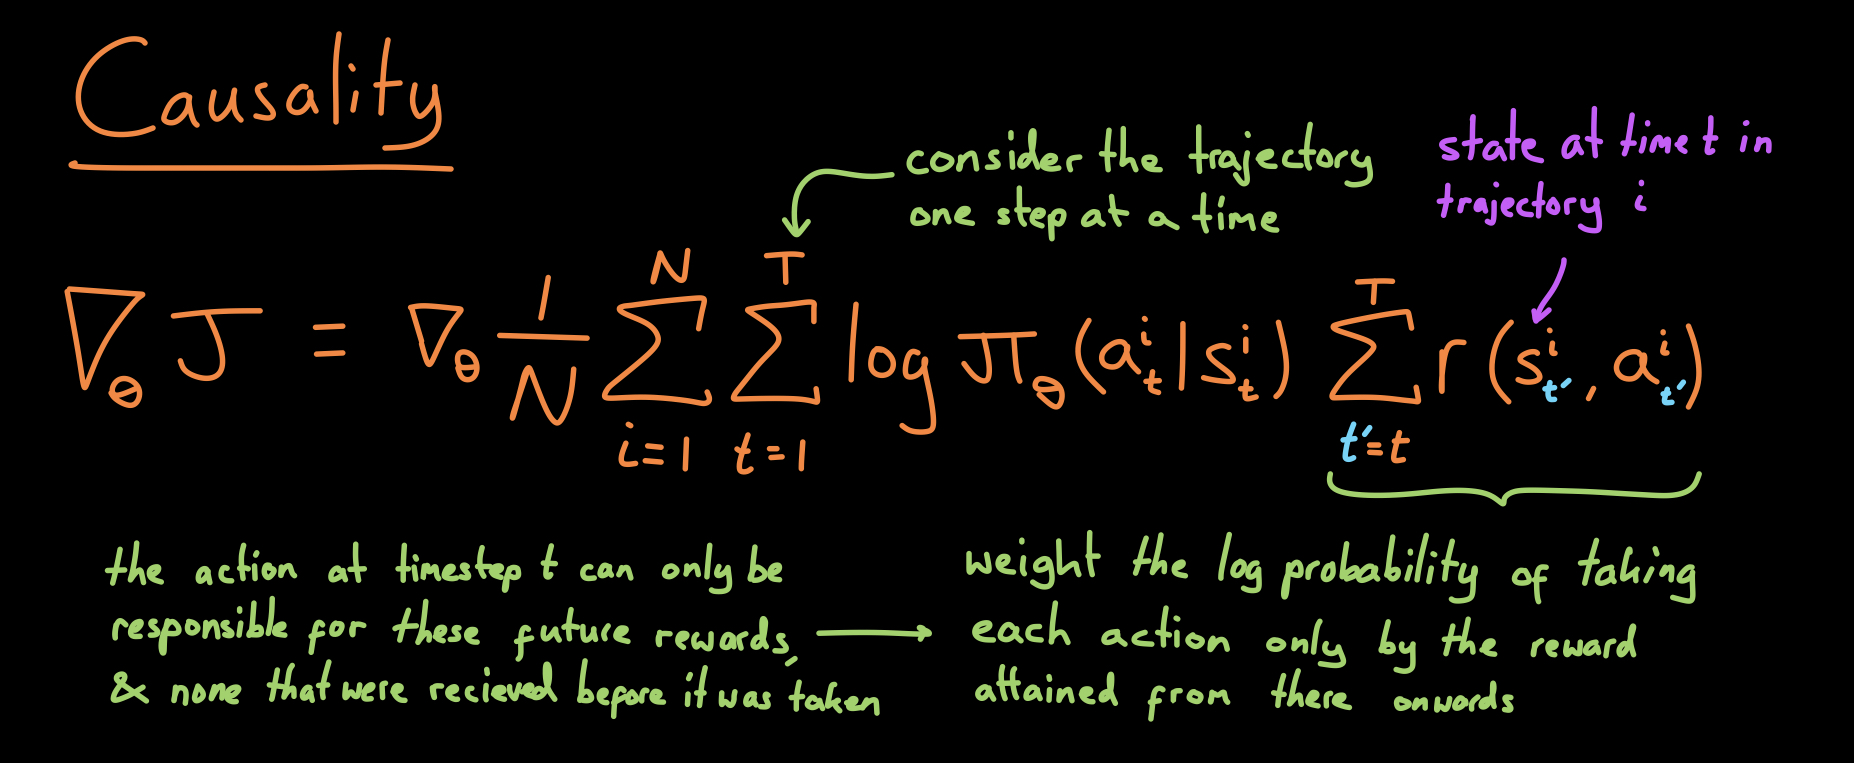 Causality
consider the trajectory
one step at a time
state at time t in
trajectory i
∇_θ J = ∇_θ 1/N Σ_{i=1}^{N} Σ_{t=1}^{T} log π_θ (a_t^i | s_t^i) Σ_{t'=t}^{T} r (s_{t'}^i, a_{t'}^i)
the action at timestep t can only be
responsible for these future rewards,
& none that were recieved before it was taken
weight the log probability of taking
each action only by the reward
attained from there onwards